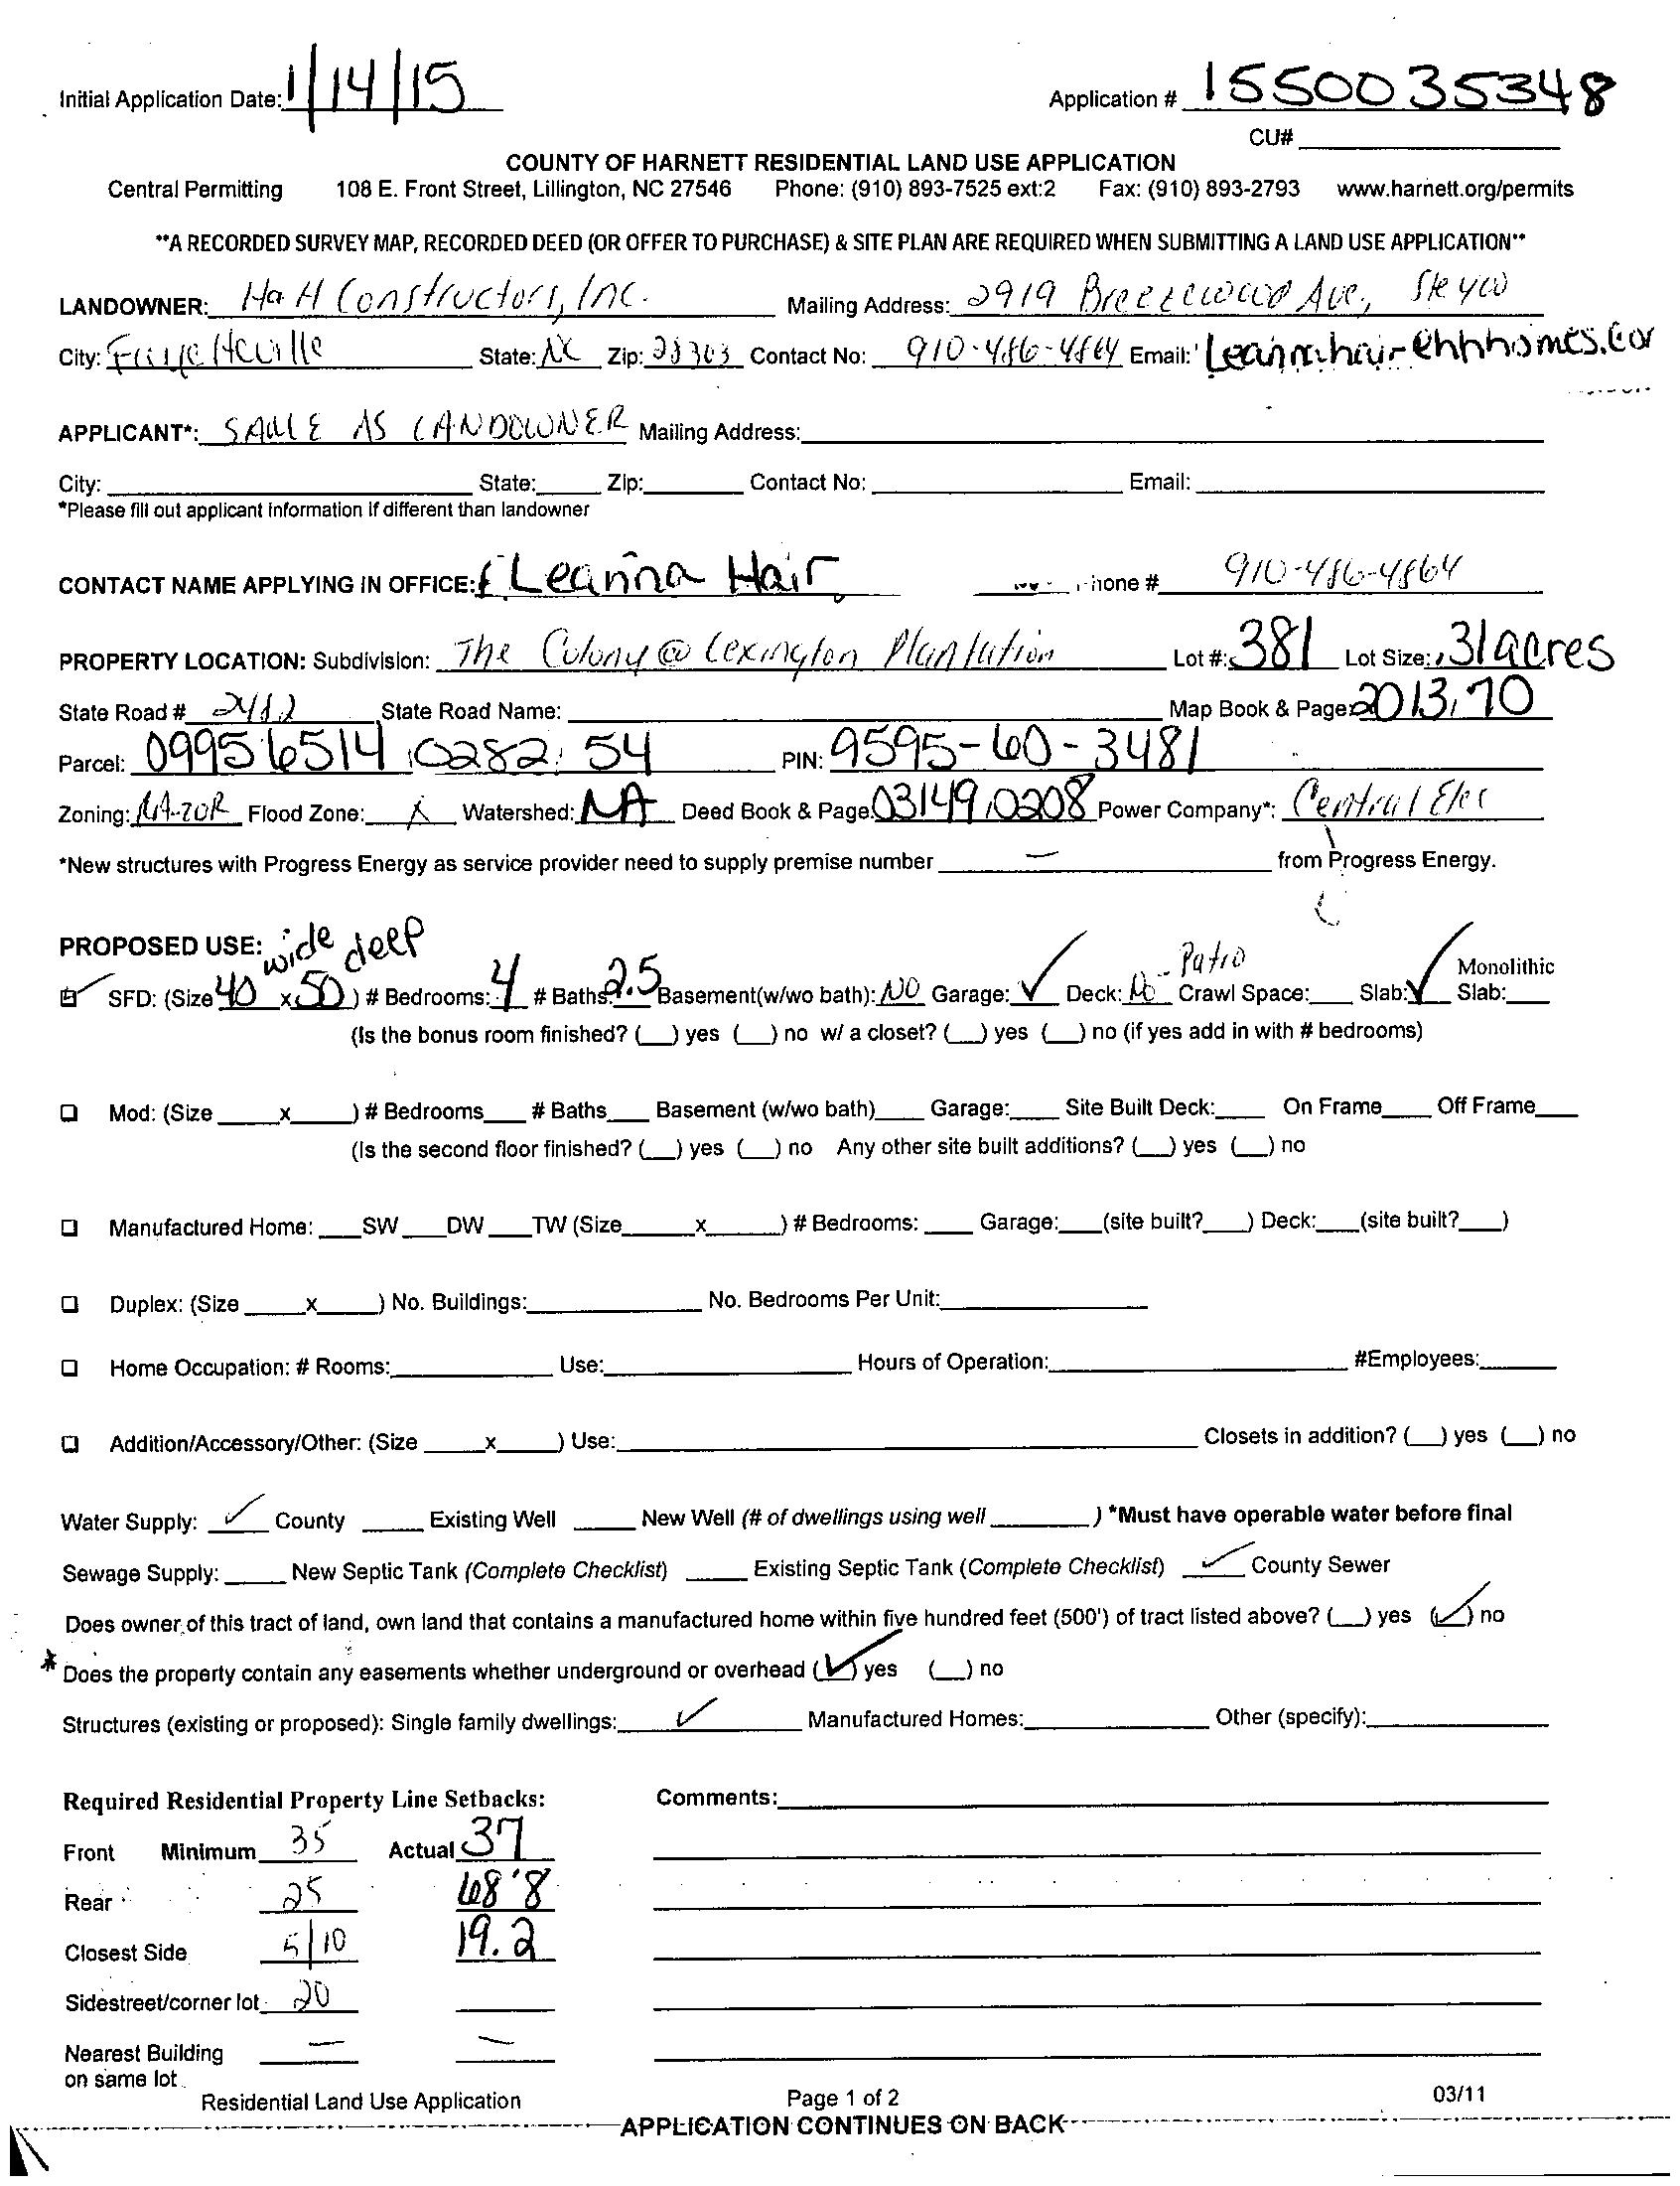 Initial Application Date: 1/14/15 Application # 1550035348
CU# ____
COUNTY OF HARNETT RESIDENTIAL LAND USE APPLICATION
Central Permitting 108 E. Front Street, Lillington, NC 27546 Phone: (910) 893-7525 ext:2 Fax: (910) 893-2793 www.harnett.org/permits
**A RECORDED SURVEY MAP, RECORDED DEED (OR OFFER TO PURCHASE) & SITE PLAN ARE REQUIRED WHEN SUBMITTING A LAND USE APPLICATION**
LANDOWNER: H&H Constructors, Inc. Mailing Address: 2919 Breezewood Ave., Ste 400
City: Fayetteville State: NC Zip: 28303 Contact No: 910-486-4864 Email: Leannahair@hhhomes.com
APPLICANT*: SAME AS LANDOWNER Mailing Address: ____
City: ____ State: ____ Zip: ____ Contact No: ____ Email: ____
*Please fill out applicant information if different than landowner
CONTACT NAME APPLYING IN OFFICE: Leanna Hair Phone # 910-486-4864
PROPERTY LOCATION: Subdivision: The Colony @ Lexington Plantation Lot #: 381 Lot Size: .31 acres
State Road # State Road Name: ____ Map Book & Page: 2013, 70
Parcel: 09956514 0282 54 PIN: 9595-60-3481
Zoning: RA-20R Flood Zone: X Watershed: NA Deed Book & Page: 03149, 0208 Power Company*: Central Elec
*New structures with Progress Energy as service provider need to supply premise number — from Progress Energy.
PROPOSED USE: wide deep
☑ SFD: (Size 40 x 50) # Bedrooms: 4 # Baths: 2.5 Basement(w/wo bath): NO Garage: ✓ Deck: No - Patio Crawl Space: ___ Slab: ✓ Monolithic Slab: ___
(Is the bonus room finished? (__) yes (__) no w/ a closet? (__) yes (__) no (if yes add in with # bedrooms)
❑ Mod: (Size ____x____) # Bedrooms___ # Baths___ Basement (w/wo bath)___ Garage:___ Site Built Deck:___ On Frame___ Off Frame___
(Is the second floor finished? (__) yes (__) no Any other site built additions? (__) yes (__) no
❑ Manufactured Home: ___SW ___DW ___TW (Size____x____) # Bedrooms: ___ Garage:___(site built?___) Deck:___(site built?___)
❑ Duplex: (Size ____x____) No. Buildings:____ No. Bedrooms Per Unit:____
❑ Home Occupation: # Rooms:____ Use:____ Hours of Operation:____ #Employees:____
❑ Addition/Accessory/Other: (Size ____x____) Use:____ Closets in addition? (__) yes (__) no
Water Supply: ✓ County ____ Existing Well ____ New Well (# of dwellings using well ____) *Must have operable water before final
Sewage Supply: ____ New Septic Tank (Complete Checklist) ____ Existing Septic Tank (Complete Checklist) ✓ County Sewer
Does owner of this tract of land, own land that contains a manufactured home within five hundred feet (500') of tract listed above? (__) yes (✓) no
* Does the property contain any easements whether underground or overhead (✓) yes (__) no
Structures (existing or proposed): Single family dwellings: ✓ Manufactured Homes:____ Other (specify):____
Required Residential Property Line Setbacks: Comments:____
Front Minimum 35 Actual 37
Rear 25 68'8
Closest Side 5/10 19.2
Sidestreet/corner lot 20 ____
Nearest Building — —
on same lot
Residential Land Use Application Page 1 of 2 03/11
APPLICATION CONTINUES ON BACK